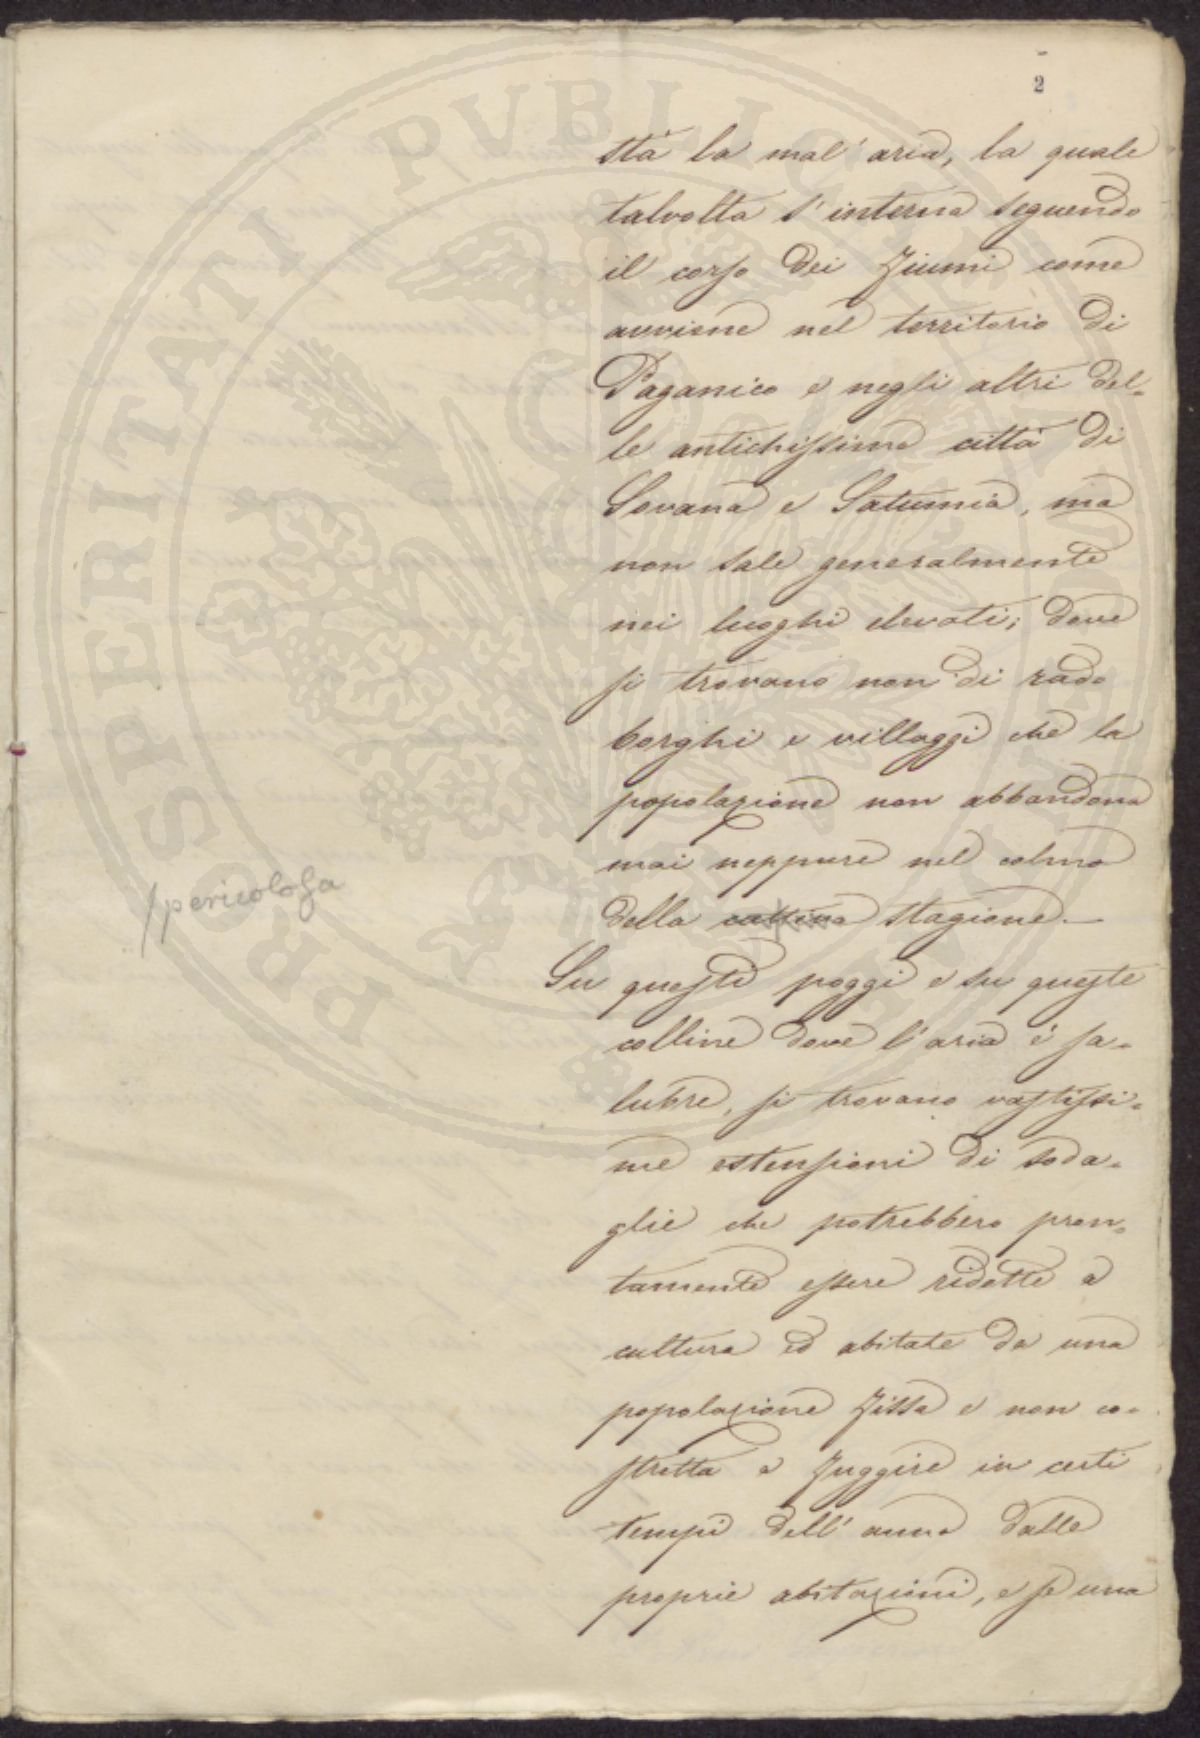 2
stà la mal' aria, la quale
talvolta s' interna seguendo
il corso dei fiumi come
avviene nel territorio di
Paganico e negli altri del=
le antichissime città di
Sovana e Saturnia, ma
non sale generalmente
nei luoghi elevati; dove
si trovano non di rado
borghi e villaggi che la
popolazione non abbandona
mai neppure nel colmo
/ pericolosa
della cattiva stagione.—
Su questi poggi e su queste
colline dove l' aria è sa=
lubre, si trovano vastissi=
me estensioni di soda=
glie che potrebbero pron=
tamente essere ridotte a
cultura ed abitate da una
popolazione fissa e non co=
stretta a fuggire in certi
tempi dell' anno dalle
proprie abitazioni, e se una
PROSPERITATI PVBLICAE